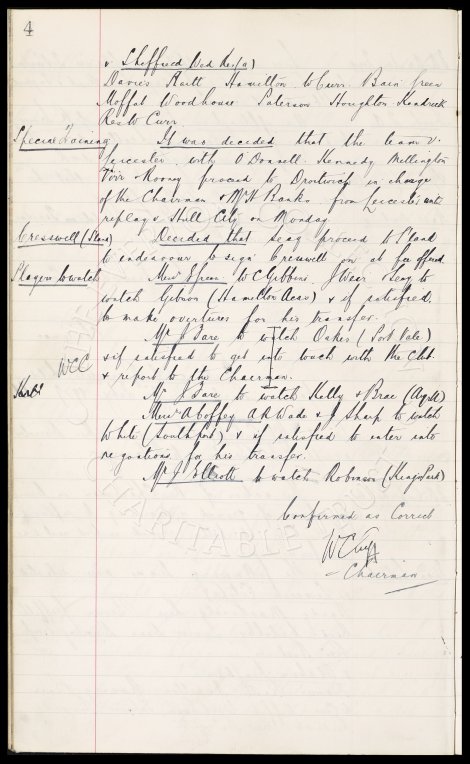 4
v Sheffield Wed Res (a)
Davies Raitt Hamilton McCurr Bain Green
Moffat Woodhouse Paterson Houghton Kendrick
Res McCurr
Special Training It was decided that the team v.
Leicester with O'Donnell. Kennedy Wellington
Weir & Rooney proceed to Droitwich in charge
of the Chairman & Mr H Banks from Leicester until
replay v Hull City on Monday
Cresswell (S'land) Decided that Secy proceed to S'land
to endeavour to sign Cresswell on at fee offered
Players to watch Messrs WC Gibbins, J Wear Secy to
watch Gibson (Hamilton Acas) & if satisfied
to make overtures for his transfer.
Mr J Tare to watch Oakes (Port Vale)
WCC & if satisfied to get into touch with the Club
& report to the Chairman.
Mr J Tare to watch Kelly & Brae (Ayr U)
Messrs A Coffey A R Wade & J Sharp to watch
White (Southport) & if satisfied to enter into
negotiations for his transfer.
Mr J to watch Robinson (Kings Park)
Confirmed as Correct
WCCuff
Chairman
CHARITABLE